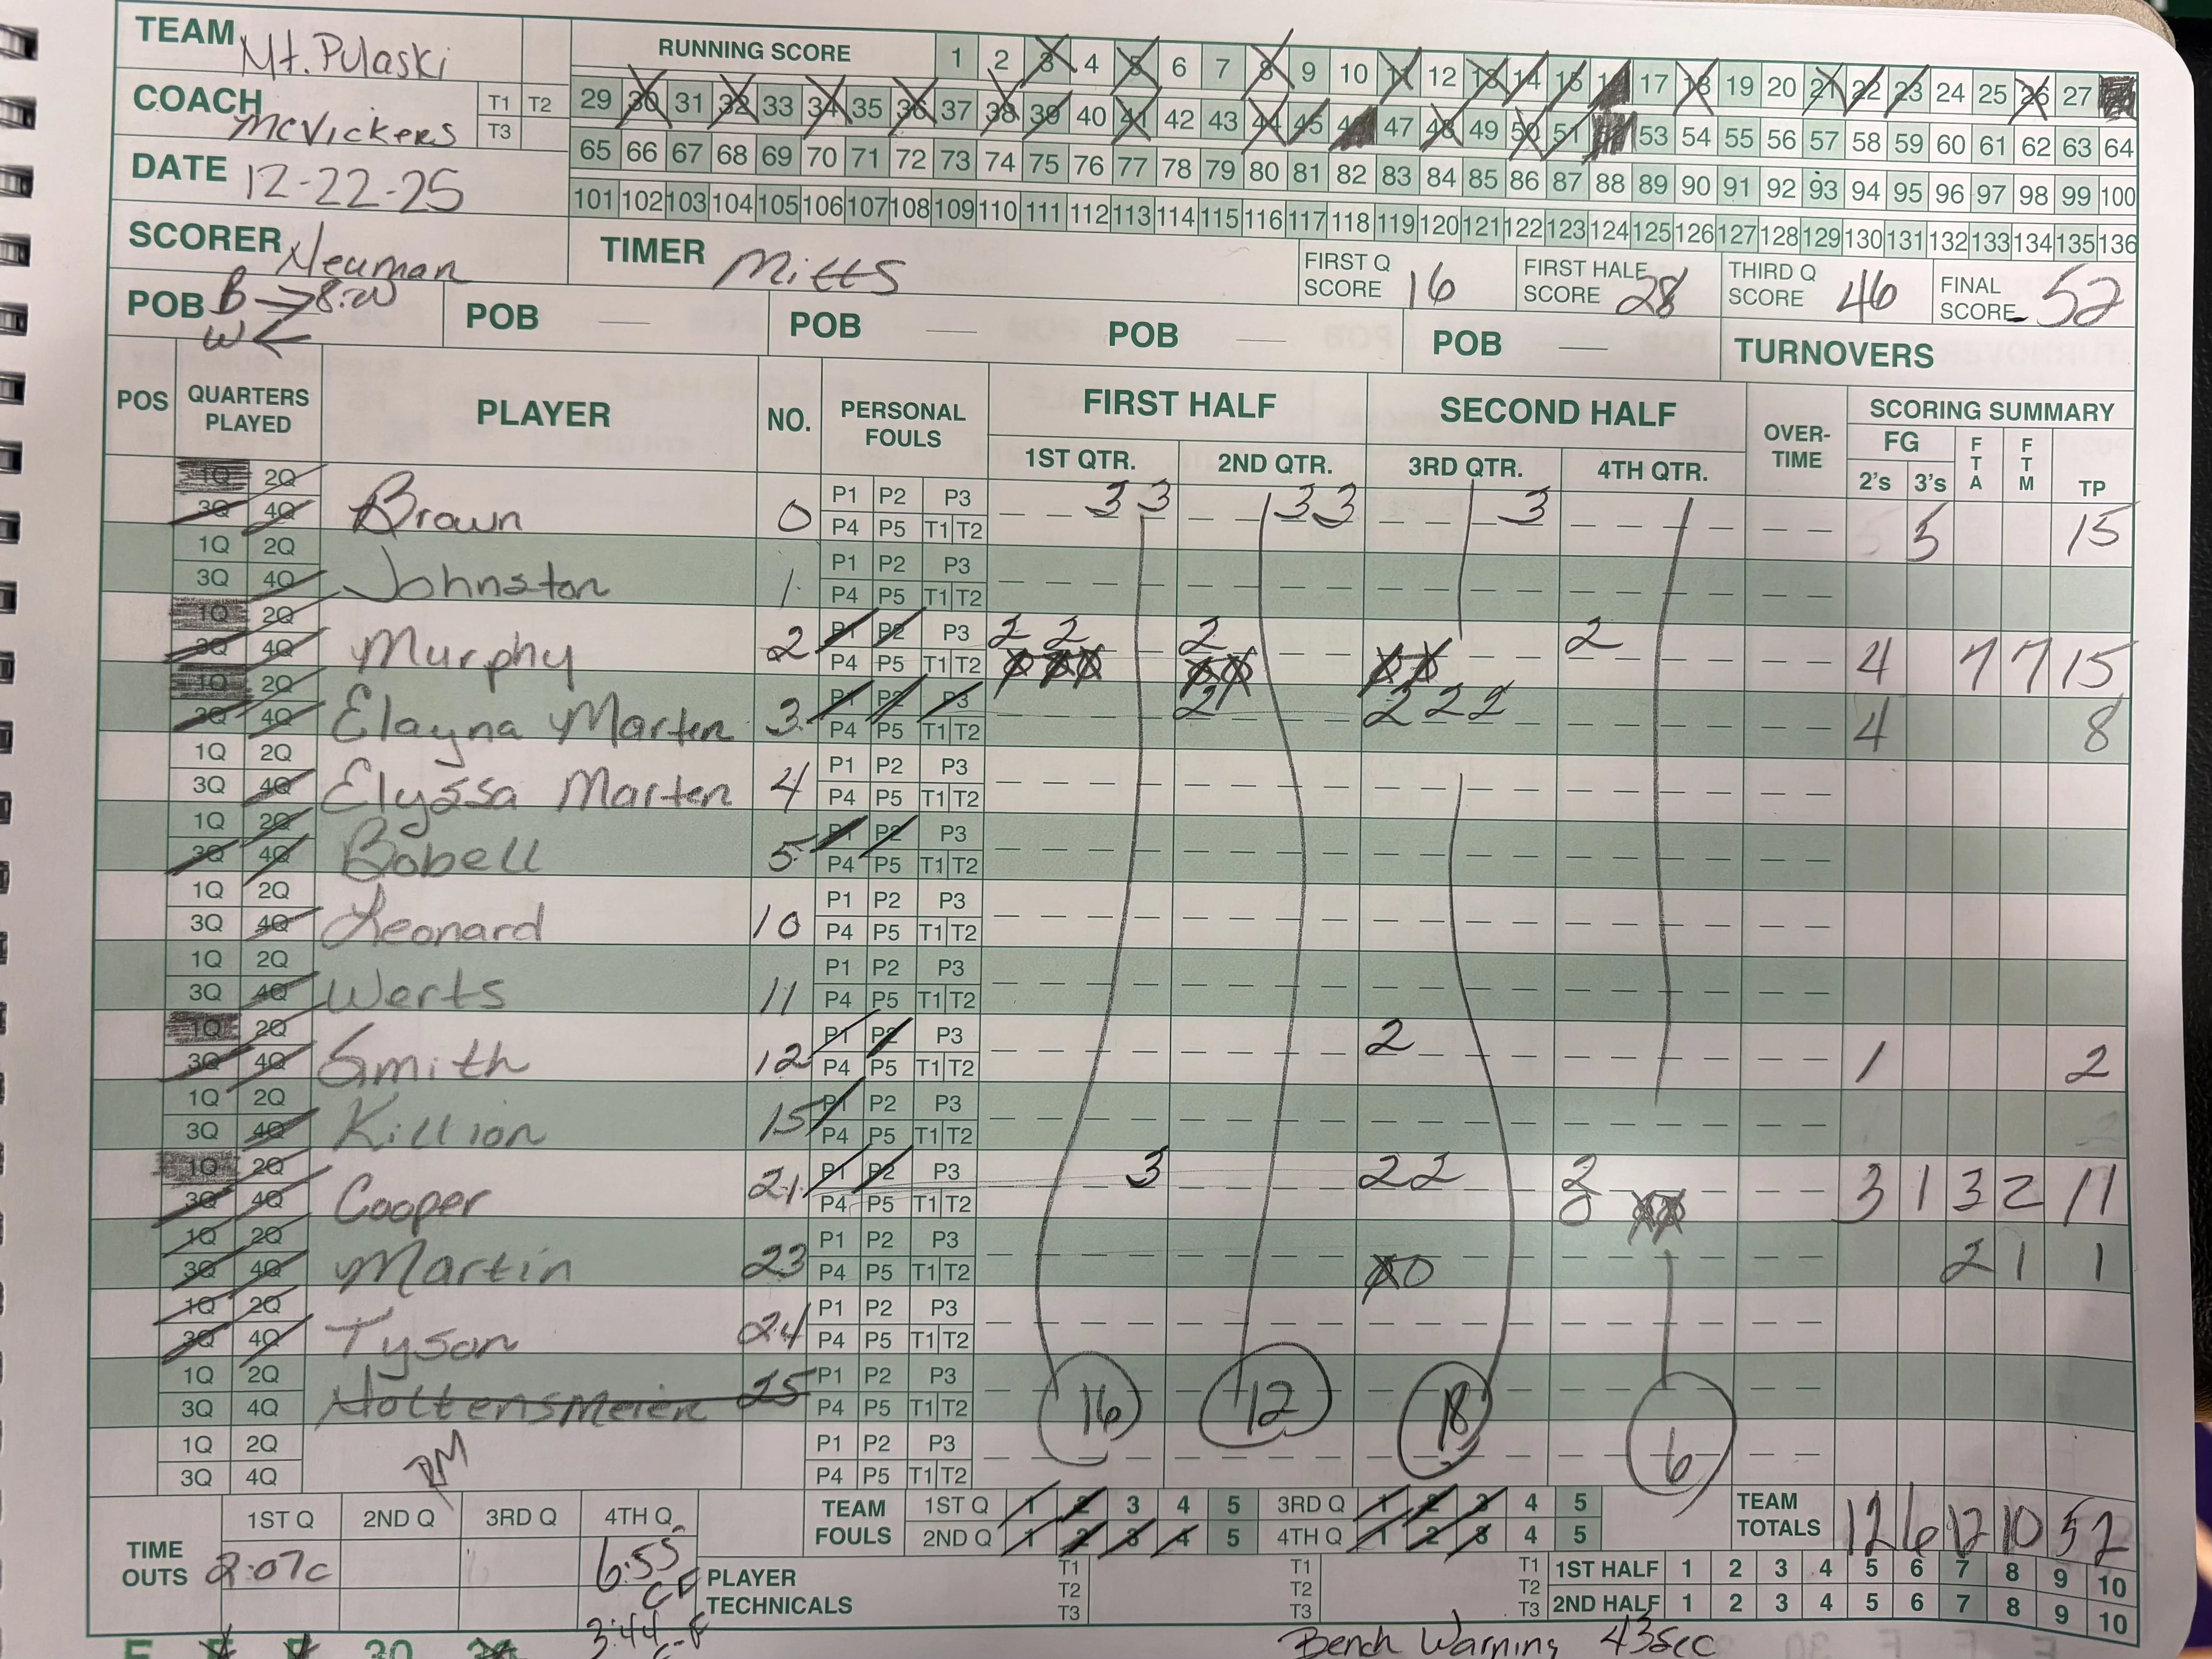 TEAM Mt. Pulaski
RUNNING SCORE 1 2 3 4 5 6 7 8 9 10 11 12 13 14 15 16 17 18 19 20 21 22 23 24 25 26 27
COACH McVickers T1 T2 T3
29 30 31 32 33 34 35 36 37 38 39 40 41 42 43 44 45 46 47 48 49 50 51 52 53 54 55 56 57 58 59 60 61 62 63 64
65 66 67 68 69 70 71 72 73 74 75 76 77 78 79 80 81 82 83 84 85 86 87 88 89 90 91 92 93 94 95 96 97 98 99 100
101 102 103 104 105 106 107 108 109 110 111 112 113 114 115 116 117 118 119 120 121 122 123 124 125 126 127 128 129 130 131 132 133 134 135 136
DATE 12-22-25
SCORER Neuman
TIMER Mitts
FIRST Q SCORE 16
FIRST HALF SCORE 28
THIRD Q SCORE 46
FINAL SCORE 52
POB B → 8:00
W ←
POB POB POB POB TURNOVERS
POS QUARTERS PLAYED PLAYER NO. PERSONAL FOULS FIRST HALF SECOND HALF OVER-TIME SCORING SUMMARY
1ST QTR. 2ND QTR. 3RD QTR. 4TH QTR. FG 2's 3's FTA FTM TP
1Q 2Q 3Q 4Q Brown 0 P1 P2 P3 P4 P5 T1 T2 3 3 3 3 3 5 15
1Q 2Q 3Q 4Q Johnston 1 P1 P2 P3 P4 P5 T1 T2
1Q 2Q 3Q 4Q Murphy 2 P1 P2 P3 P4 P5 T1 T2 2 2 2 2 4 7 7 15
1Q 2Q 3Q 4Q Elayna Marten 3 P1 P2 P3 P4 P5 T1 T2 2 2 2 2 4 8
1Q 2Q 3Q 4Q Elyssa Marten 4 P1 P2 P3 P4 P5 T1 T2
1Q 2Q 3Q 4Q Bobell 5 P1 P2 P3 P4 P5 T1 T2
1Q 2Q 3Q 4Q Leonard 10 P1 P2 P3 P4 P5 T1 T2
1Q 2Q 3Q 4Q Werts 11 P1 P2 P3 P4 P5 T1 T2
1Q 2Q 3Q 4Q Smith 12 P1 P2 P3 P4 P5 T1 T2 2 1 2
1Q 2Q 3Q 4Q Killion 15 P1 P2 P3 P4 P5 T1 T2
1Q 2Q 3Q 4Q Cooper 21 P1 P2 P3 P4 P5 T1 T2 3 2 2 2 0 3 1 3 2 11
1Q 2Q 3Q 4Q Martin 23 P1 P2 P3 P4 P5 T1 T2 0 2 1 1
1Q 2Q 3Q 4Q Tyson 24 P1 P2 P3 P4 P5 T1 T2
1Q 2Q 3Q 4Q Hottensmeier 25 P1 P2 P3 P4 P5 T1 T2
16 12 18 6
1Q 2Q 3Q 4Q P1 P2 P3 P4 P5 T1 T2
TIME OUTS 1ST Q 2ND Q 3RD Q 4TH Q
2:07c 6:55
3:44
TEAM FOULS 1ST Q 1 2 3 4 5 3RD Q 1 2 3 4 5
2ND Q 1 2 3 4 5 4TH Q 1 2 3 4 5
TEAM TOTALS 12 6 12 10 52
PLAYER TECHNICALS T1 T2 T3 T1 T2 T3 T1 T2 T3
1ST HALF 1 2 3 4 5 6 7 8 9 10
2ND HALF 1 2 3 4 5 6 7 8 9 10
Bench Warning 43sec